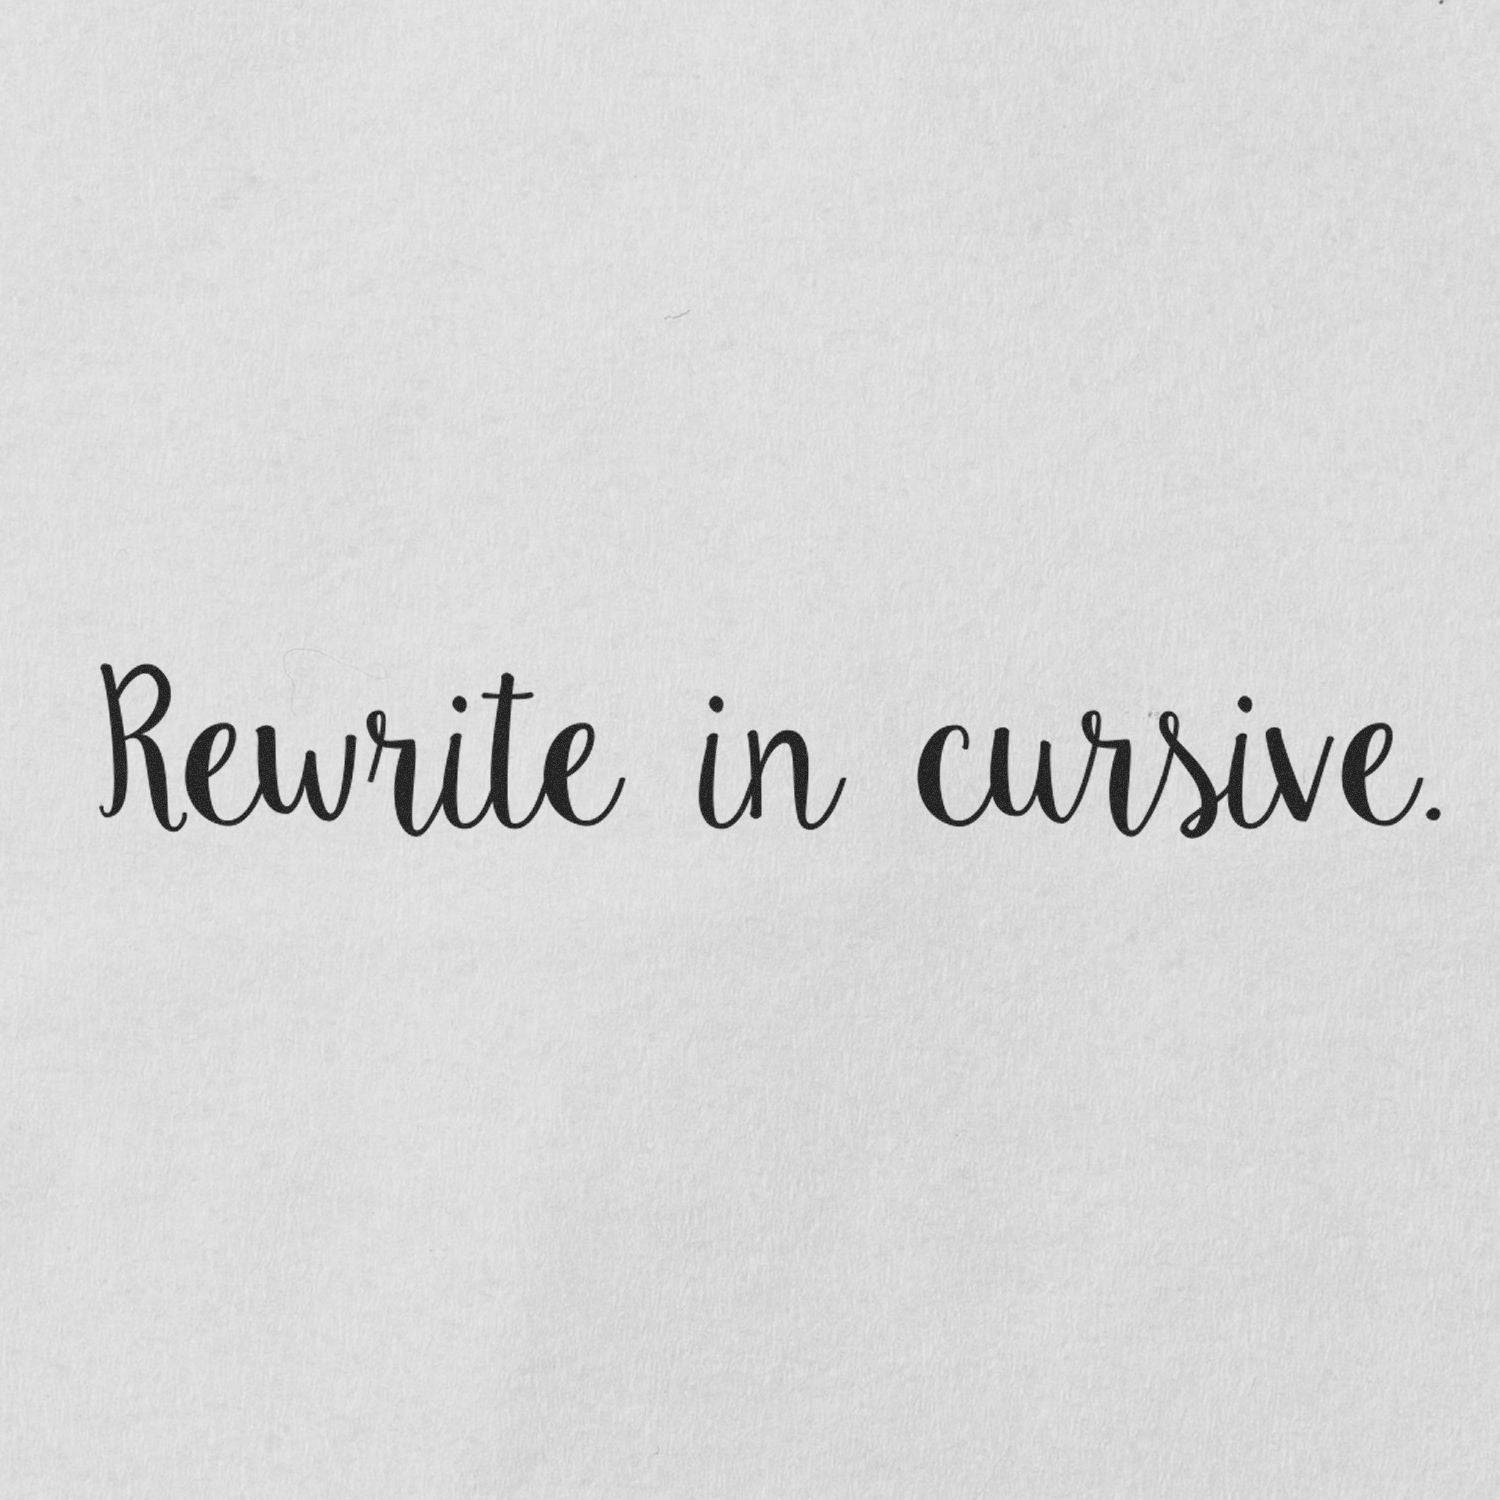 Rewrite in cursive.